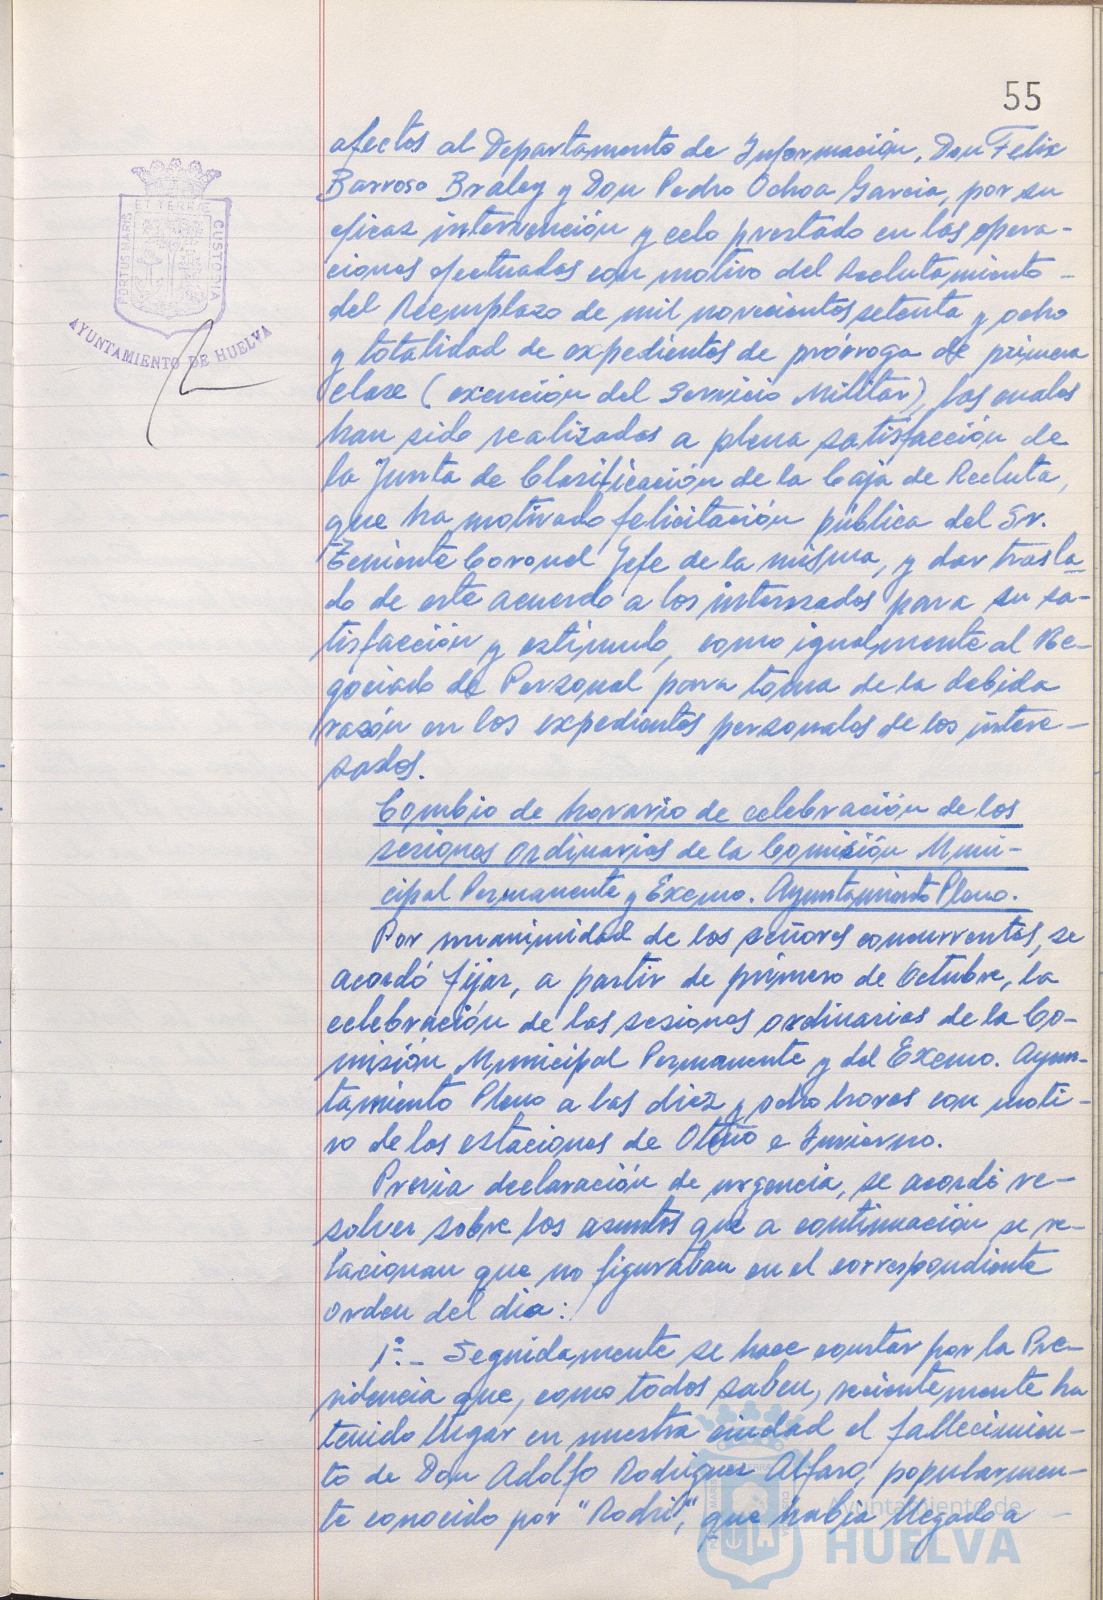 55
afectos al Departamento de Información, Don Felix
Barroso Braley y Don Pedro Ochoa Garcia, por su
eficaz intervención y celo prestado en las opera-
ciones efectuadas con motivo del Reclutamiento
del Reemplazo de mil novecientos setenta y ocho
y totalidad de expedientes de prórroga de primera
clase (exención del Servicio Militar), las cuales
han sido realizadas a plena satisfacción de
la Junta de Clasificación de la Caja de Recluta,
que ha motivado felicitación pública del Sr.
Teniente Coronel Jefe de la misma, y dar trasla-
do de este acuerdo a los interesados para su sa-
tisfacción y estímulo, como igualmente al Ne-
gociado de Personal para toma de la debida
razón en los expedientes personales de los intere-
sados.
Cambio de horario de celebración de las
sesiones ordinarias de la Comisión Muni-
cipal Permanente y Excmo. Ayuntamiento Pleno.
Por unanimidad de los señores concurrentes, se
acordó fijar, a partir de primero de Octubre, la
celebración de las sesiones ordinarias de la Co-
misión Municipal Permanente y del Excmo. Ayun-
tamiento Pleno a las diez y ocho horas con moti-
vo de las estaciones de Otoño e Invierno.
Previa declaración de urgencia, se acordó re-
solver sobre los asuntos que a continuación se re-
lacionan que no figuraban en el correspondiente
orden del dia:
1º.- Seguidamente se hace constar por la Pre-
sidencia que, como todos saben, recientemente ha
tenido lugar en nuestra ciudad el fallecimien-
to de Don Adolfo Rodriguez Alfaro, popularmen-
te conocido por "Rodri", que habia llegado a
PORTUS MARIS
ET TERRAE
CUSTODIA
AYUNTAMIENTO DE HUELVA
Ayuntamiento de
HUELVA